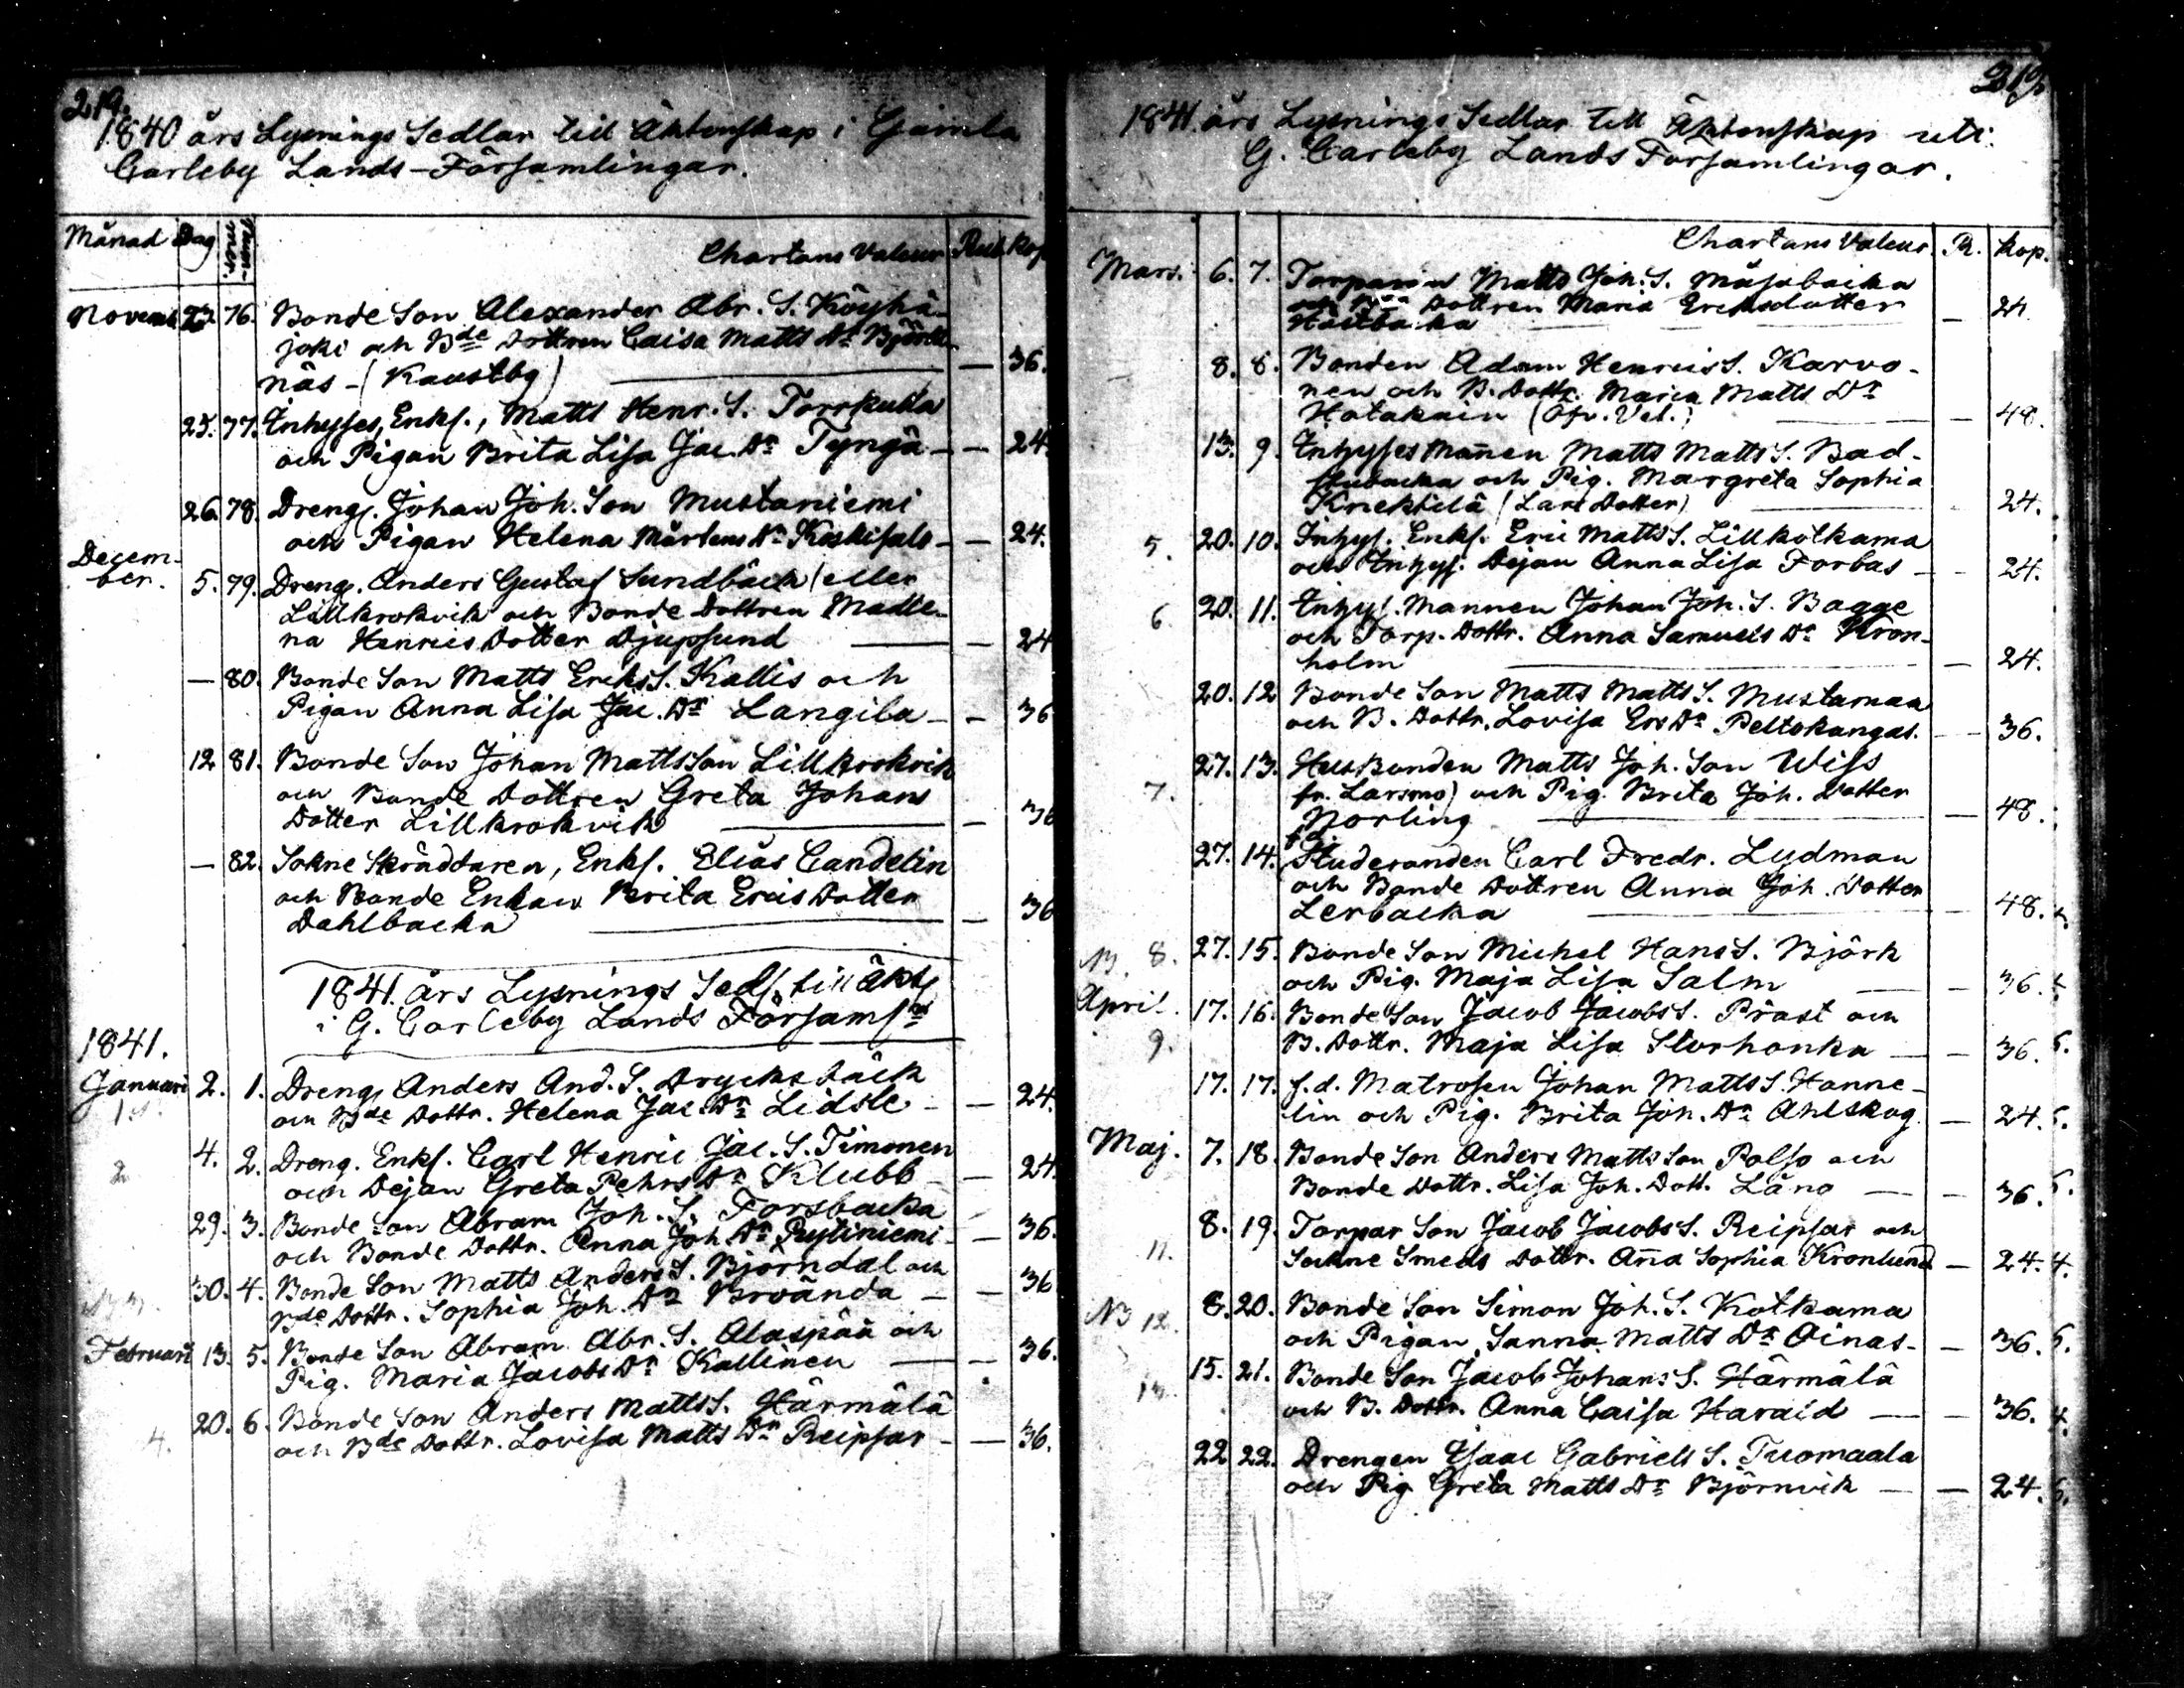 219.
1840 års Lysnings Sedlar till Äktenskap i Gamla
Carleby Lands-Församlingar.
Månad Dag Num-mer. Chartans Valeur Rub. Kop.
Novemb. 23. 76. Bonde Son Alexander Abr. S. Köyhä-
joki och Bde Dottren Caisa Matts Dr Björk-
näs - (Kaustby) — 36.
25. 77. Inhyses, Enkl., Matts Henr. S. Torrkulla
och Pigan Brita Lisa Jac. Dr Tynga — 24.
26. 78. Dreng. Johan Joh. Son Mustaniemi
och Pigan Helena Mårtens Dr Koskisalo — 24.
Decem-
ber. 5. 79. Dreng. Anders Gustaf Sundbäck (eller
Lillkrokvik och Bonde Dottren Madle-
na Henrics Dotter Djupsund — 24
— 80. Bonde Son Matts Ericks S. Kallis och
Pigan Anna Lisa Jac. Dr Langila — 36
12 81. Bonde Son Johan Mattsson Lillkrokvik
och Bonde Dottren Greta Johans
Dotter Lillkrokvik — 36
— 82. Sokne Skräddaren, Enkl. Elias Candelin
och Bonde Enkan Brita Erics Dotter
Dahlbacka — 36
1841. års Lysnings Sedl. till Äkts
i G. Carleby Lands Församl:r
1841.
Januari 2. 1. Dreng Anders And. S. Drycksbäck
och Bde Dottr. Helena Jac. Dr Lidsle — 24.
1.
4. 2. Dreng. Enkl. Carl Henric Jac. S. Timonen
2 och Dejan Greta Pehrs Dr Klubb — 24.
29. 3. Bonde Son Abram Joh. S. Forsbacka
och Bonde Dottr. Anna Joh Dr Rytiniemi — 36.
30. 4. Bonde Son Matts Anders S. Björndal och
Bde Dottr. Sophia Joh. Dr Broända — 36
Februari 13. 5. Bonde Son Abram Abr. S. Alaspää och
Pig. Maria Jacobs Dr Kallinen — 36.
20. 6. Bonde Son Anders Matts S. Härmälä
4. och Bde Dottr. Lovisa Matts Dr Reipsar — 36.
219.
1841. års Lysnings Sedlar till Äktenskap uti
G. Carleby Lands Församlingar.
Chartans Valeur R. Kop.
Mars. 6. 7. Torparen Matts Joh. S. Måsabacka
och Dottren Maria Ericksdotter
Hästbacka — 24
8. 8. Bonden Adam Henrics S. Karvo-
nen och B. Dottr. Maria Matts Dr
Hotakain (Öfv. Vet.) — 48.
13. 9. Inhyses Mannen Matts Matts S. Bad-
stubacka och Pig. Margreta Sophia
Knektilä (Lars Dotter) — 24.
5. 20. 10. Inhys. Enkl. Eric Matts S. Lillkotkama
och Inhys. Dejan Anna Lisa Forbas — 24.
6. 20. 11. Inhys. Mannen Johan Joh. S. Bagge
och Torp. Dottr. Anna Samuels Dr Kron-
holm — 24.
20. 12 Bonde Son Matts Matts S. Mustamaa
och B. Dottr. Lovisa Ers Dr Peltokangas. — 36.
27. 13. Husbonden Matts Joh. Son Wiss
7. fr. Larsmo) och Pig. Brita Joh. Dotter
Norling — 48.
27. 14. f.d. Studeranden Carl Fredr. Lydman
och Bonde Dottren Anna Joh. Dotter
Lerbacka — 48.
N. 8. 27. 15. Bonde Son Michel Hans S. Björk
och Pig. Maja Lisa Salm — 36.
April. 17. 16. Bonde Son Jacob Jacobs S. Präst och
9. B. Dottr. Maja Lisa Storhonka — 36. 5.
17. 17. f.d. Matrosen Johan Matts S. Hanne-
lin och Pig. Brita Joh. Dr Ahlskog — 24. 5.
Maj. 7. 18. Bonde Son Anders Mattsson Palso och
Bonde Dottr. Lisa Joh. Dott. Lång — 36. 5.
8. 19. Torpar Son Jacob Jacobs S. Reipsar och
11. Sokne Smeds Dottr. Anna Sophia Kronlund — 24. 4.
N 12. 8. 20. Bonde Son Simon Joh. S. Kotkama
och Pigan Sanna Matts Dr Oinas — 36. 5.
13. 15. 21. Bonde Son Jacob Johans S. Härmälä
och B. Dottr. Anna Caisa Harald — 36. 4.
22 22. Drengen Isaac Gabriels S. Tuomaala
och Pig Greta Matts Dr Björnvik — 24. 5.